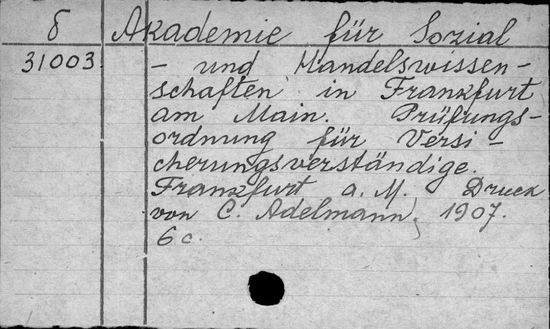 δ Akademie für Sozial
31003. - und Handelswissen-
schaften in Frankfurt
am Main. Prüfungs-
ordnung für Versi-
cherungsverständige.
Frankfurt a. M. Druck
von C. Adelmann, 1907.
6 c.